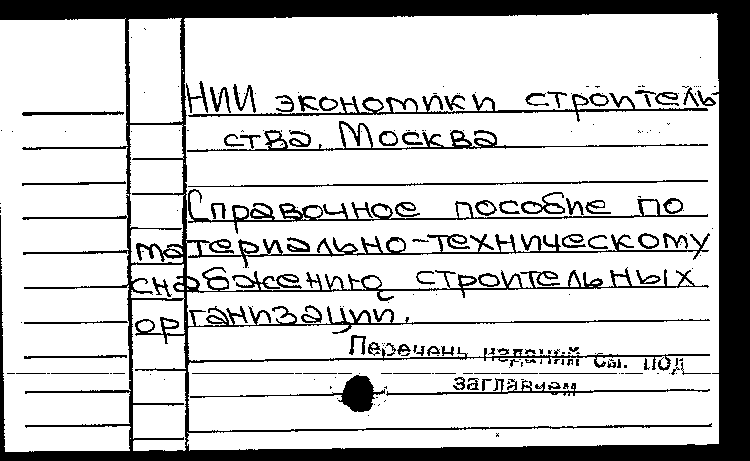 НИИ экономики строитель-
ства. Москва
Справочное пособие по
материально-техническому
снабжению строительных
организаций.
Перечень изданий см. под
заглавием